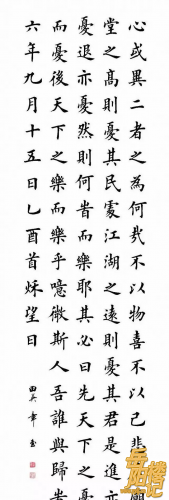 心或異二者之為何哉不以物喜不以己悲
堂之高則憂其民處江湖之遠則憂其君是進亦
憂退亦憂然則何旹而樂耶其必曰先天下之
而憂後天下之樂而樂乎噫微斯人吾誰與歸
六年九月十五日乙酉首望日
田英章
岳阳楼记